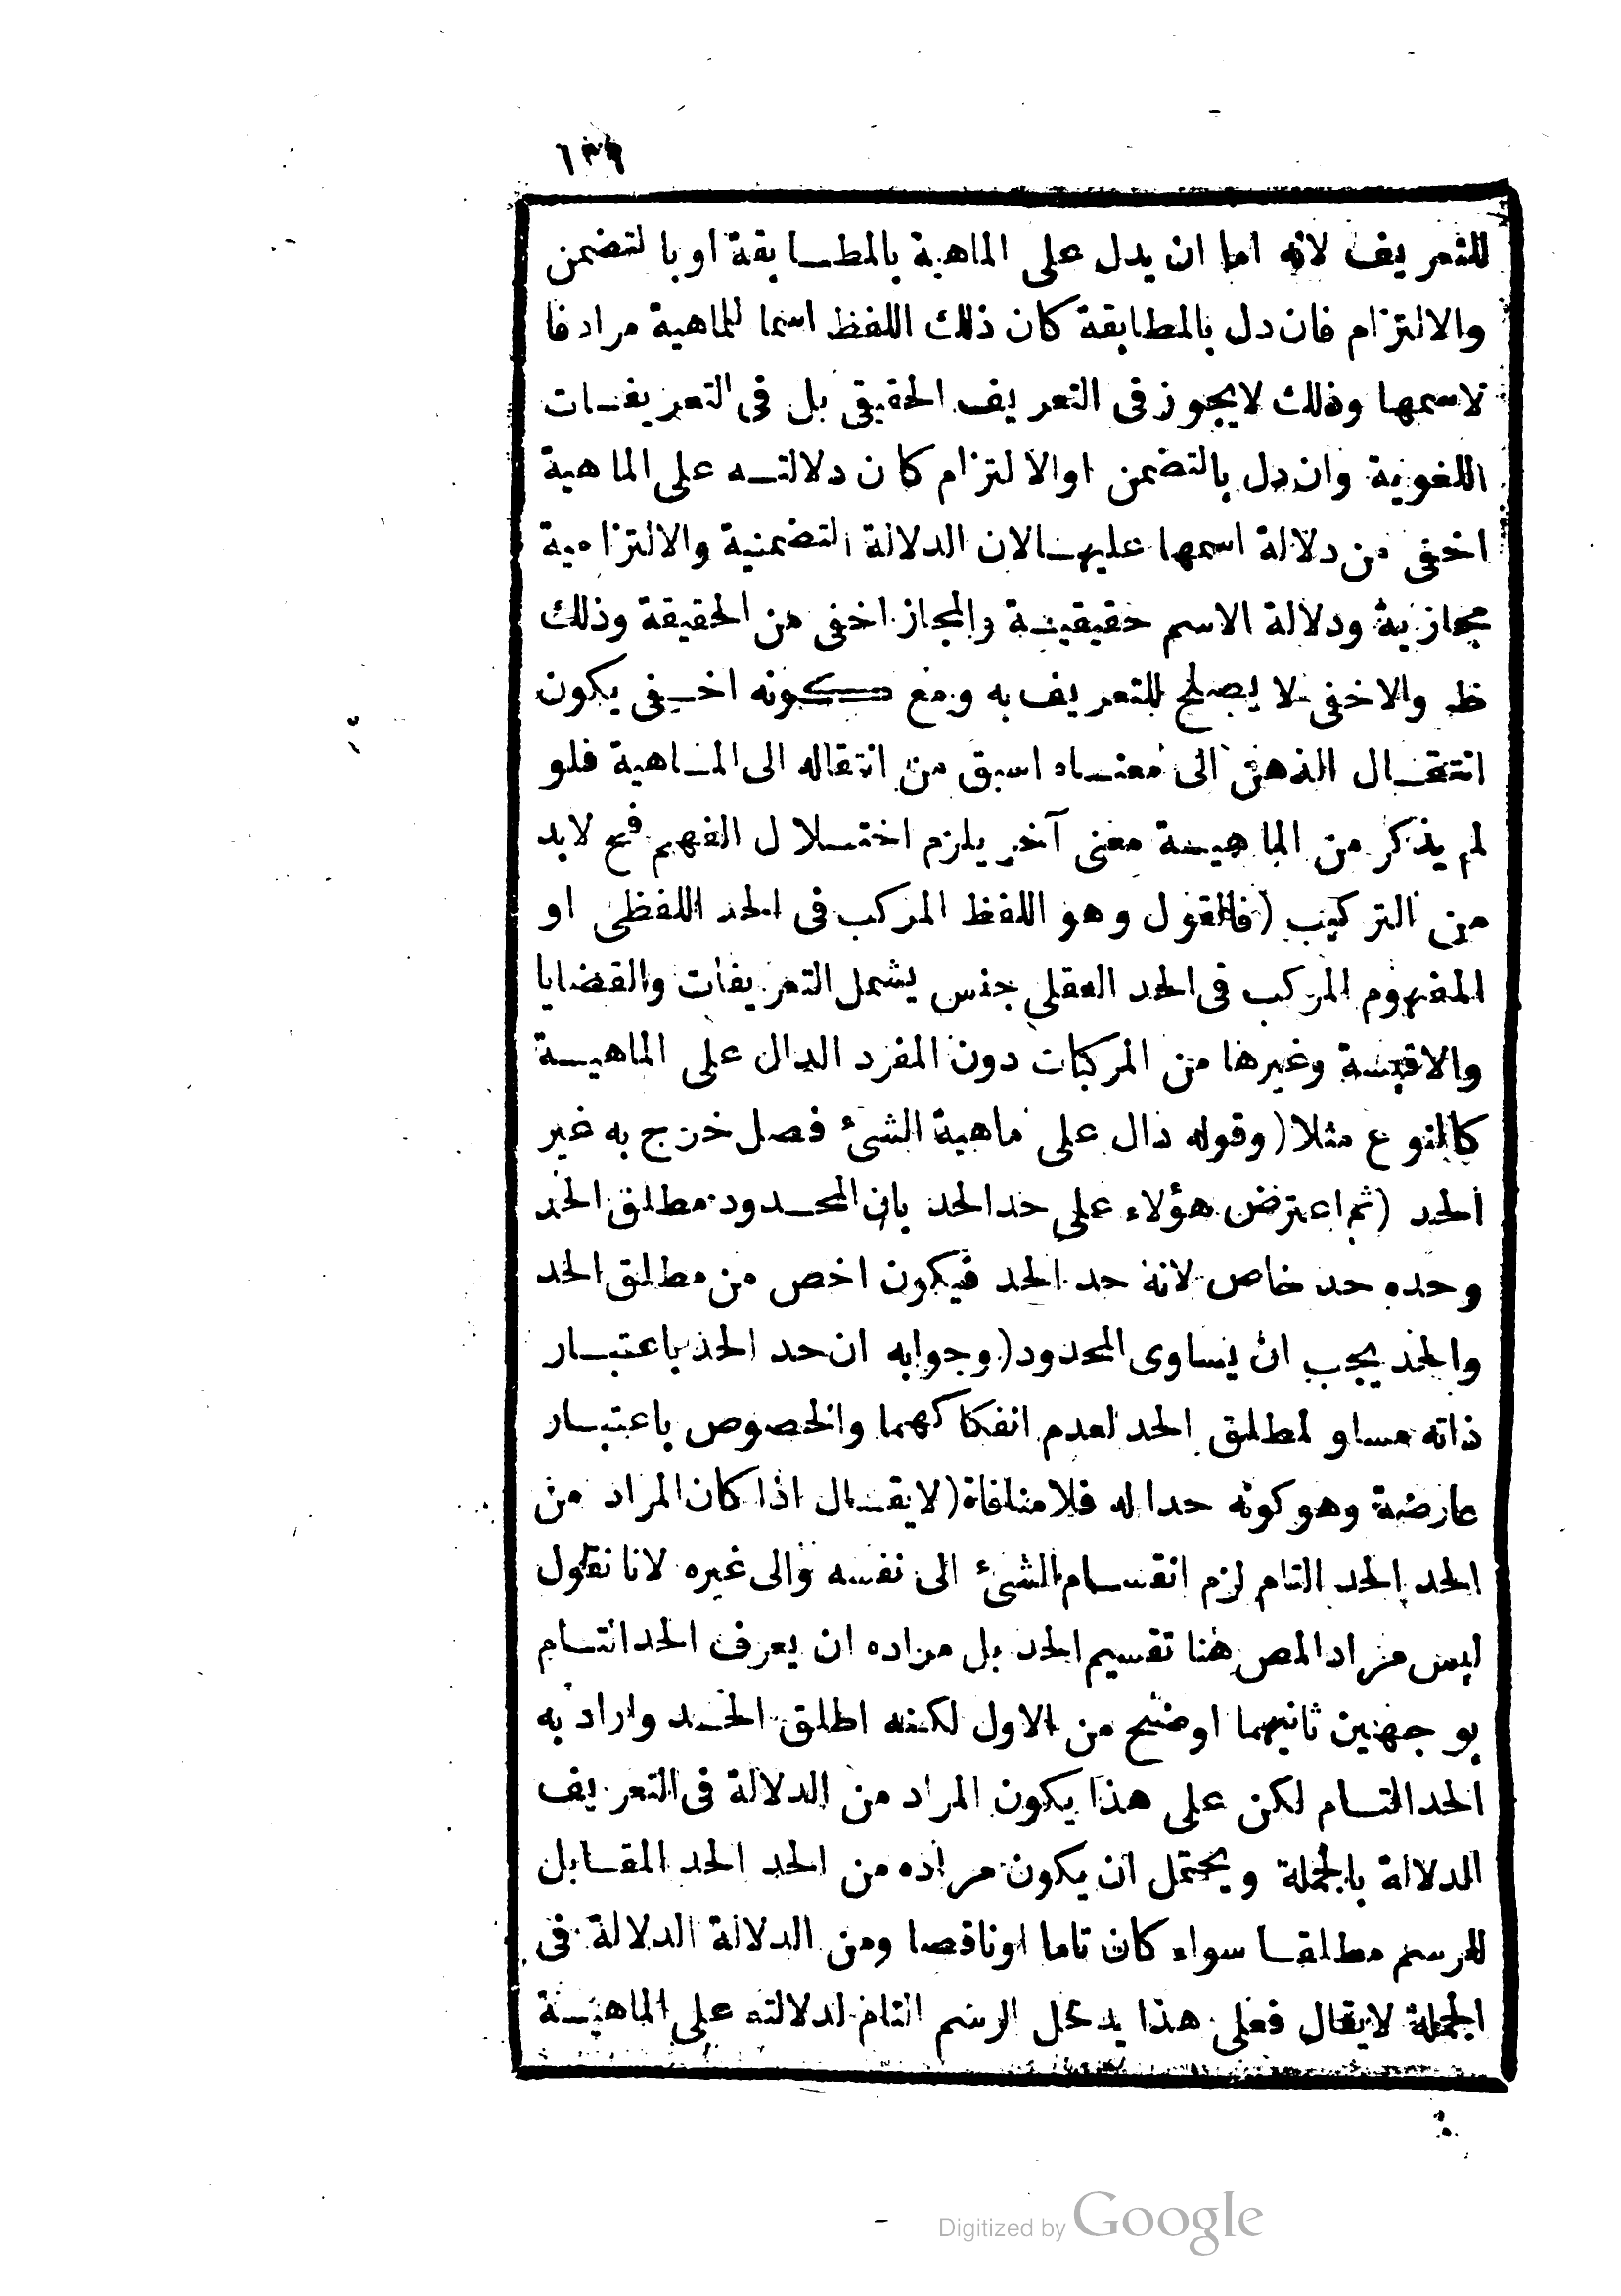 ١٣٦
للتعريف لانه اما ان يدل على الماهية بالمطابقة او بالتضمن
والالتزام فان دل بالمطابقة كان ذلك اللفظ اسما للماهية مرادفا
لاسمها وذلك لايجوز فى التعريف الحقيقى بل فى التعريفات
اللغوية وان دل بالتضمن او الالتزام كان دلالته على الماهية
اخفى من دلالة اسمها عليها لان الدلالة التضمنية والالتزامية
مجازية ودلالة الاسم حقيقية والمجاز اخفى من الحقيقة وذلك
ظ والاخفى لا يصلح للتعريف به ومع كونه اخفى يكون
انتقال الذهن الى معناه اسبق من انتقاله الى الماهية فلو
لم يذكر من الماهية معنى آخر يلزم اختلال الفهم فح لابد
من التركيب (فالقول وهو اللفظ المركب فى الحد اللفظى او
المفهوم المركب فى الحد العقلى جنس يشمل التعريفات والقضايا
والاقيسة وغيرها من المركبات دون المفرد الدال على الماهية
كالنوع مثلا (وقوله دال على ماهية الشئ فصل خرج به غير
الحد (ثم اعترض هؤلاء على حد الحد بان المحدود مطلق الحد
وحده حد خاص لانه حد الحد فيكون اخص من مطلق الحد
والحد يجب ان يساوى المحدود (وجوابه ان حد الحد باعتبار
ذاته مساو لمطلق الحد لعدم انفكاكهما والخصوص باعتبار
عارضة وهو كونه حدا له فلا منافاة (لا يقال اذا كان المراد من
الحد الحد التام لزم انقسام الشئ الى نفسه والى غيره لانا نقول
ليس مراد المص هنا تقسيم الحد بل مراده ان يعرف الحد التام
بوجهين ثانيهما اوضح من الاول لكنه اطلق الحد واراد به
الحد التام لكن على هذا يكون المراد من الدلالة فى التعريف
الدلالة بالجملة ويحتمل ان يكون مراده من الحد الحد المقابل
للرسم مطلقا سواء كان تاما او ناقصا ومن الدلالة الدلالة فى
الجملة لايقال فعلى هذا يدخل الرسم التام لدلالته على الماهية
Digitized by Google